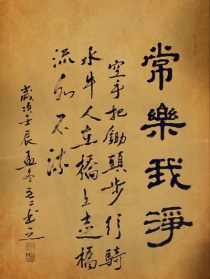 常樂我淨
空手把鋤頭步行騎
水牛人在橋上走橋
流水不流
歲次壬辰孟冬